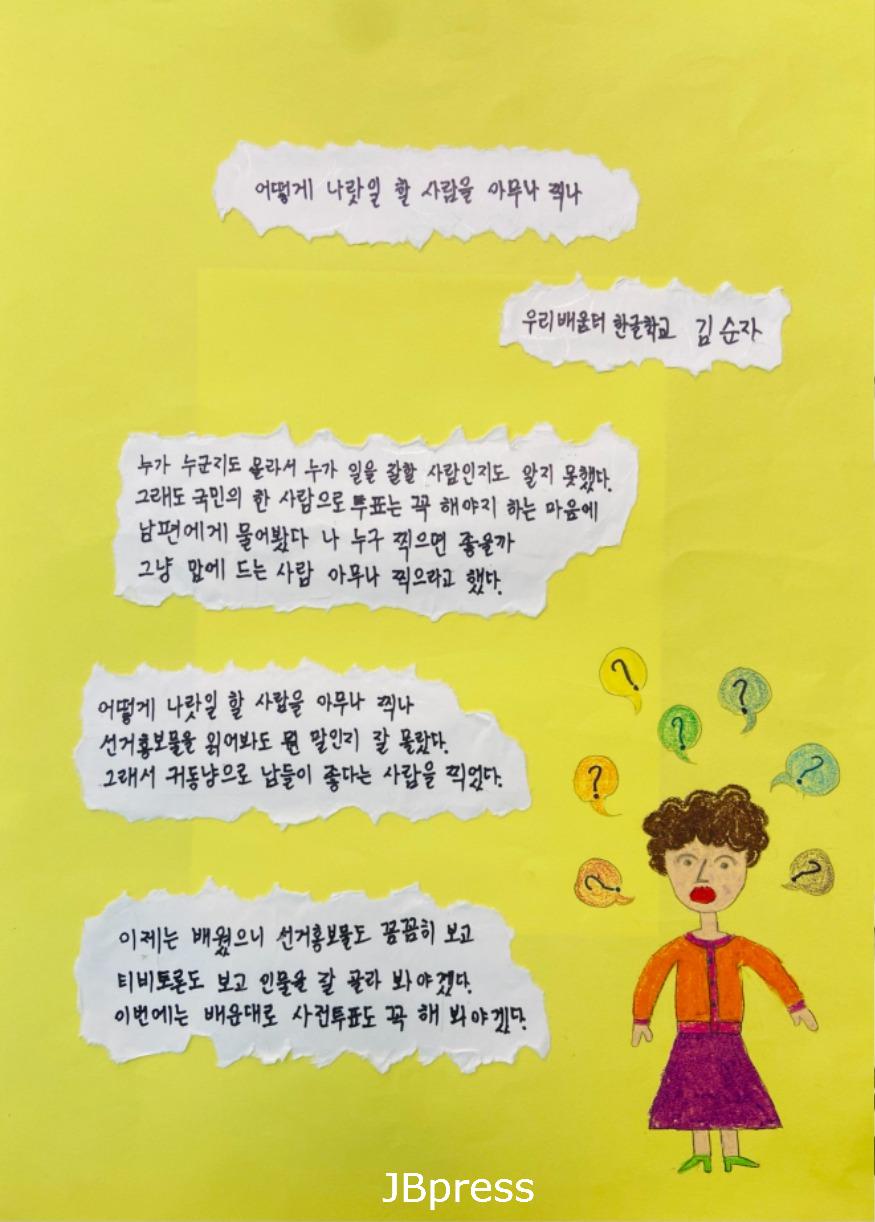 어떻게 나랏일 할 사람을 아무나 찍나
우리배움터 한글학교 김순자
누가 누군지도 몰라서 누가 일을 잘할 사람인지도 알지 못했다.
그래도 국민의 한 사람으로 투표는 꼭 해야지 하는 마음에
남편에게 물어봤다 나 누구 찍으면 좋을까
그냥 맘에 드는 사람 아무나 찍으라고 했다.
어떻게 나랏일 할 사람을 아무나 찍나
선거홍보물을 읽어봐도 뭔 말인지 잘 몰랐다.
그래서 귀동냥으로 남들이 좋다는 사람을 찍었다.
이제는 배웠으니 선거홍보물도 꼼꼼히 보고
티비토론도 보고 인물을 잘 골라 봐야겠다.
이번에는 배운대로 사전투표도 꼭 해 봐야겠다.
?
?
?
?
?
?
?
JBpress